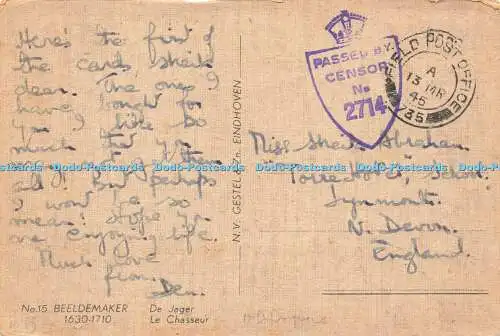 Here's the first of
the cards Sheila
dear. The ones I
have bought for
you I like so
much that you
them
all! But perhaps
I won't be so
mean! Hope you
are enjoying life.
Much love
from.
Den.
No.15 BEELDEMAKER
1630-1710
De Jager
Le Chasseur
N.V. GESTEL & Zn. EINDHOVEN
PASSED BY
CENSOR
No
2714
FIELD POST OFFICE
A
13 MR
45
Miss Sheila Abraham.
Torre Hotel,
Lynmouth.
N. Devon.
England.
Dodo-Postcards Dodo-Postcards Dodo-Postcards Dodo-Postcards Dodo-Postcards